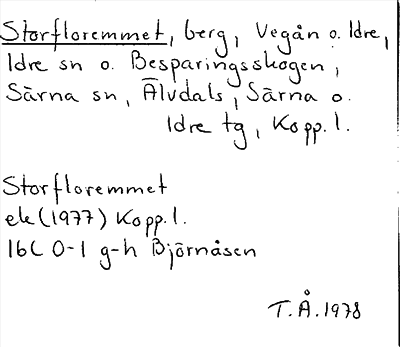 Storfloremmet, berg, Vegån o. Idre,
Idre sn o. Besparingsskogen,
Särna sn, Älvdals, Särna o.
Idre tg, Kopp. l.
Storfloremmet
ek (1977) Kopp. l.
16C 0-1 g-h Björnåsen
T.Å. 1978